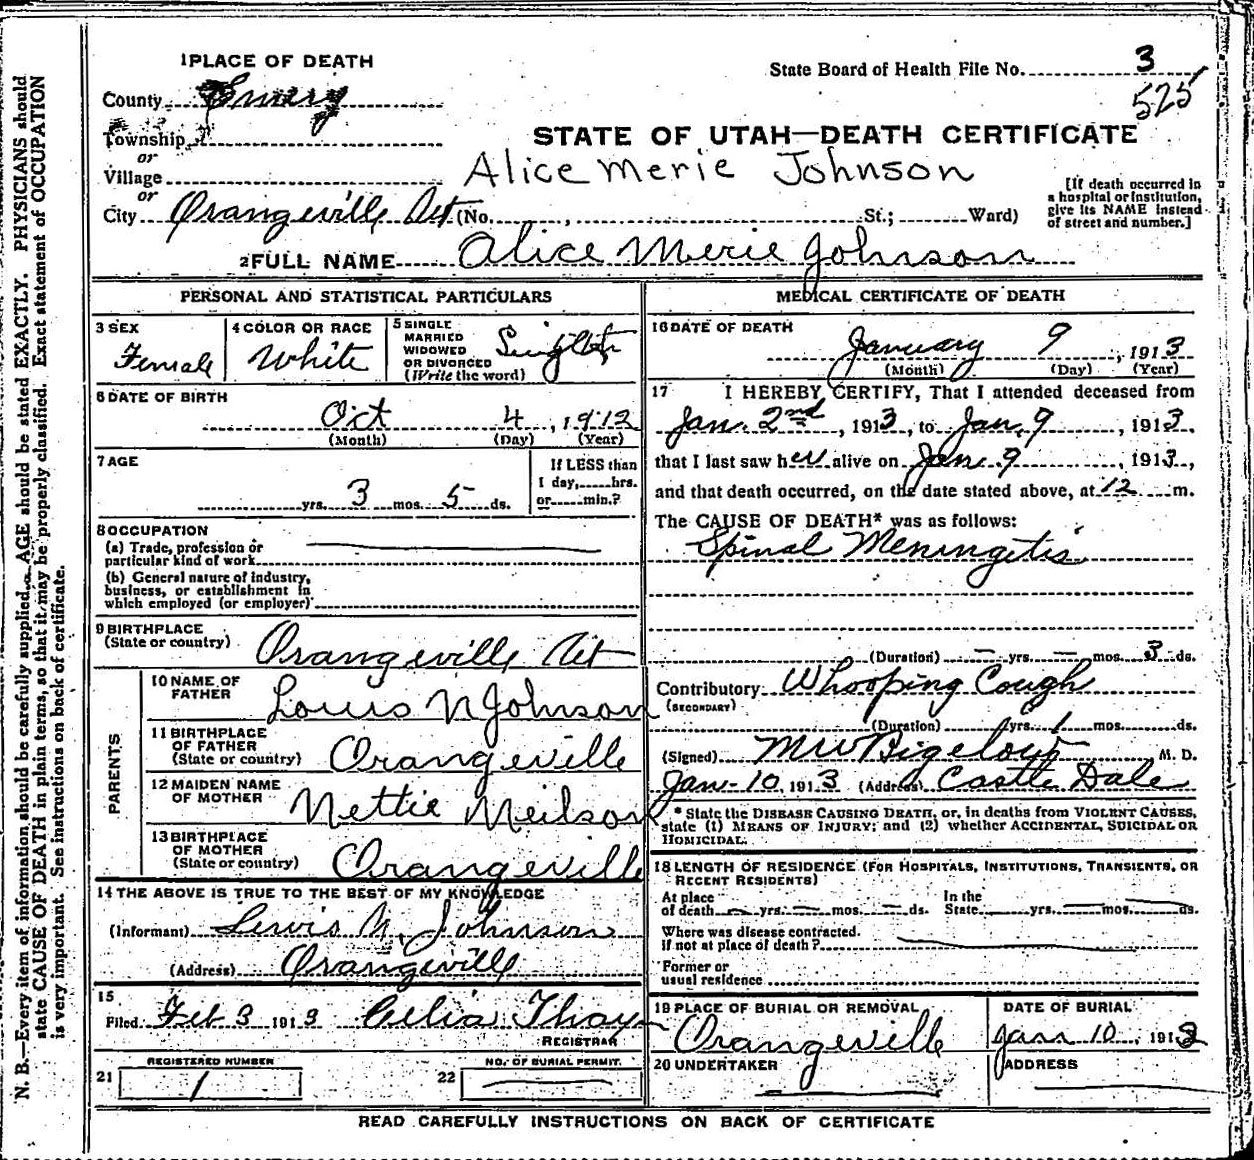 1 PLACE OF DEATH
State Board of Health File No. 3
County Emery
525
Township
or
STATE OF UTAH—DEATH CERTIFICATE
Village
Alice Merie Johnson
or
City Orangeville Ut (No. , St.; Ward)
[If death occurred in a hospital or institution, give its NAME instead of street and number.]
2 FULL NAME Alice Merie Johnson
PERSONAL AND STATISTICAL PARTICULARS
3 SEX
Female
4 COLOR OR RACE
White
5 SINGLE
MARRIED
WIDOWED
OR DIVORCED
(Write the word)
6 DATE OF BIRTH
Oct 4, 1912
(Month) (Day) (Year)
7 AGE
yrs. 3 mos. 5 ds.
If LESS than
1 day, hrs.
or min.?
8 OCCUPATION
(a) Trade, profession or
particular kind of work
(b) General nature of industry,
business, or establishment in
which employed (or employer)
9 BIRTHPLACE
(State or country) Orangeville Ut
PARENTS
10 NAME OF
FATHER Louis N Johnson
11 BIRTHPLACE
OF FATHER
(State or country) Orangeville
12 MAIDEN NAME
OF MOTHER Nettie Neilson
13 BIRTHPLACE
OF MOTHER
(State or country) Orangeville
14 THE ABOVE IS TRUE TO THE BEST OF MY KNOWLEDGE
(Informant) Lewis N. Johnson
(Address) Orangeville
15
Filed Feb 3 1913 Celia Thay
REGISTRAR
REGISTERED NUMBER
21 1
NO. OF BURIAL PERMIT.
22
MEDICAL CERTIFICATE OF DEATH
16 DATE OF DEATH
January 9, 1913
(Month) (Day) (Year)
17 I HEREBY CERTIFY, That I attended deceased from
Jan. 2nd, 1913, to Jan. 9, 1913,
that I last saw her alive on Jan. 9, 1913,
and that death occurred, on the date stated above, at 12 m.
The CAUSE OF DEATH* was as follows:
Spinal Meningitis
(Duration) — yrs. — mos. 3 ds.
Contributory Whooping Cough
(SECONDARY)
(Duration) yrs. 1 mos. ds.
(Signed) M W Bigelow M. D.
Jan-10, 1913 (Address) Castle Dale
* State the DISEASE CAUSING DEATH, or, in deaths from VIOLENT CAUSES,
state (1) MEANS OF INJURY; and (2) whether ACCIDENTAL, SUICIDAL OR
HOMICIDAL.
18 LENGTH OF RESIDENCE (FOR HOSPITALS, INSTITUTIONS, TRANSIENTS, OR
RECENT RESIDENTS)
At place
of death — yrs. — mos. — ds.
In the
State yrs. mos. ds.
Where was disease contracted.
If not at place of death?
Former or
usual residence
19 PLACE OF BURIAL OR REMOVAL
Orangeville
DATE OF BURIAL
Jan 10, 1913
20 UNDERTAKER
ADDRESS
READ CAREFULLY INSTRUCTIONS ON BACK OF CERTIFICATE
N. B.—Every item of information should be carefully supplied. AGE should be stated EXACTLY. PHYSICIANS should
state CAUSE OF DEATH in plain terms, so that it may be properly classified. Exact statement of OCCUPATION
is very important. See instructions on back of certificate.